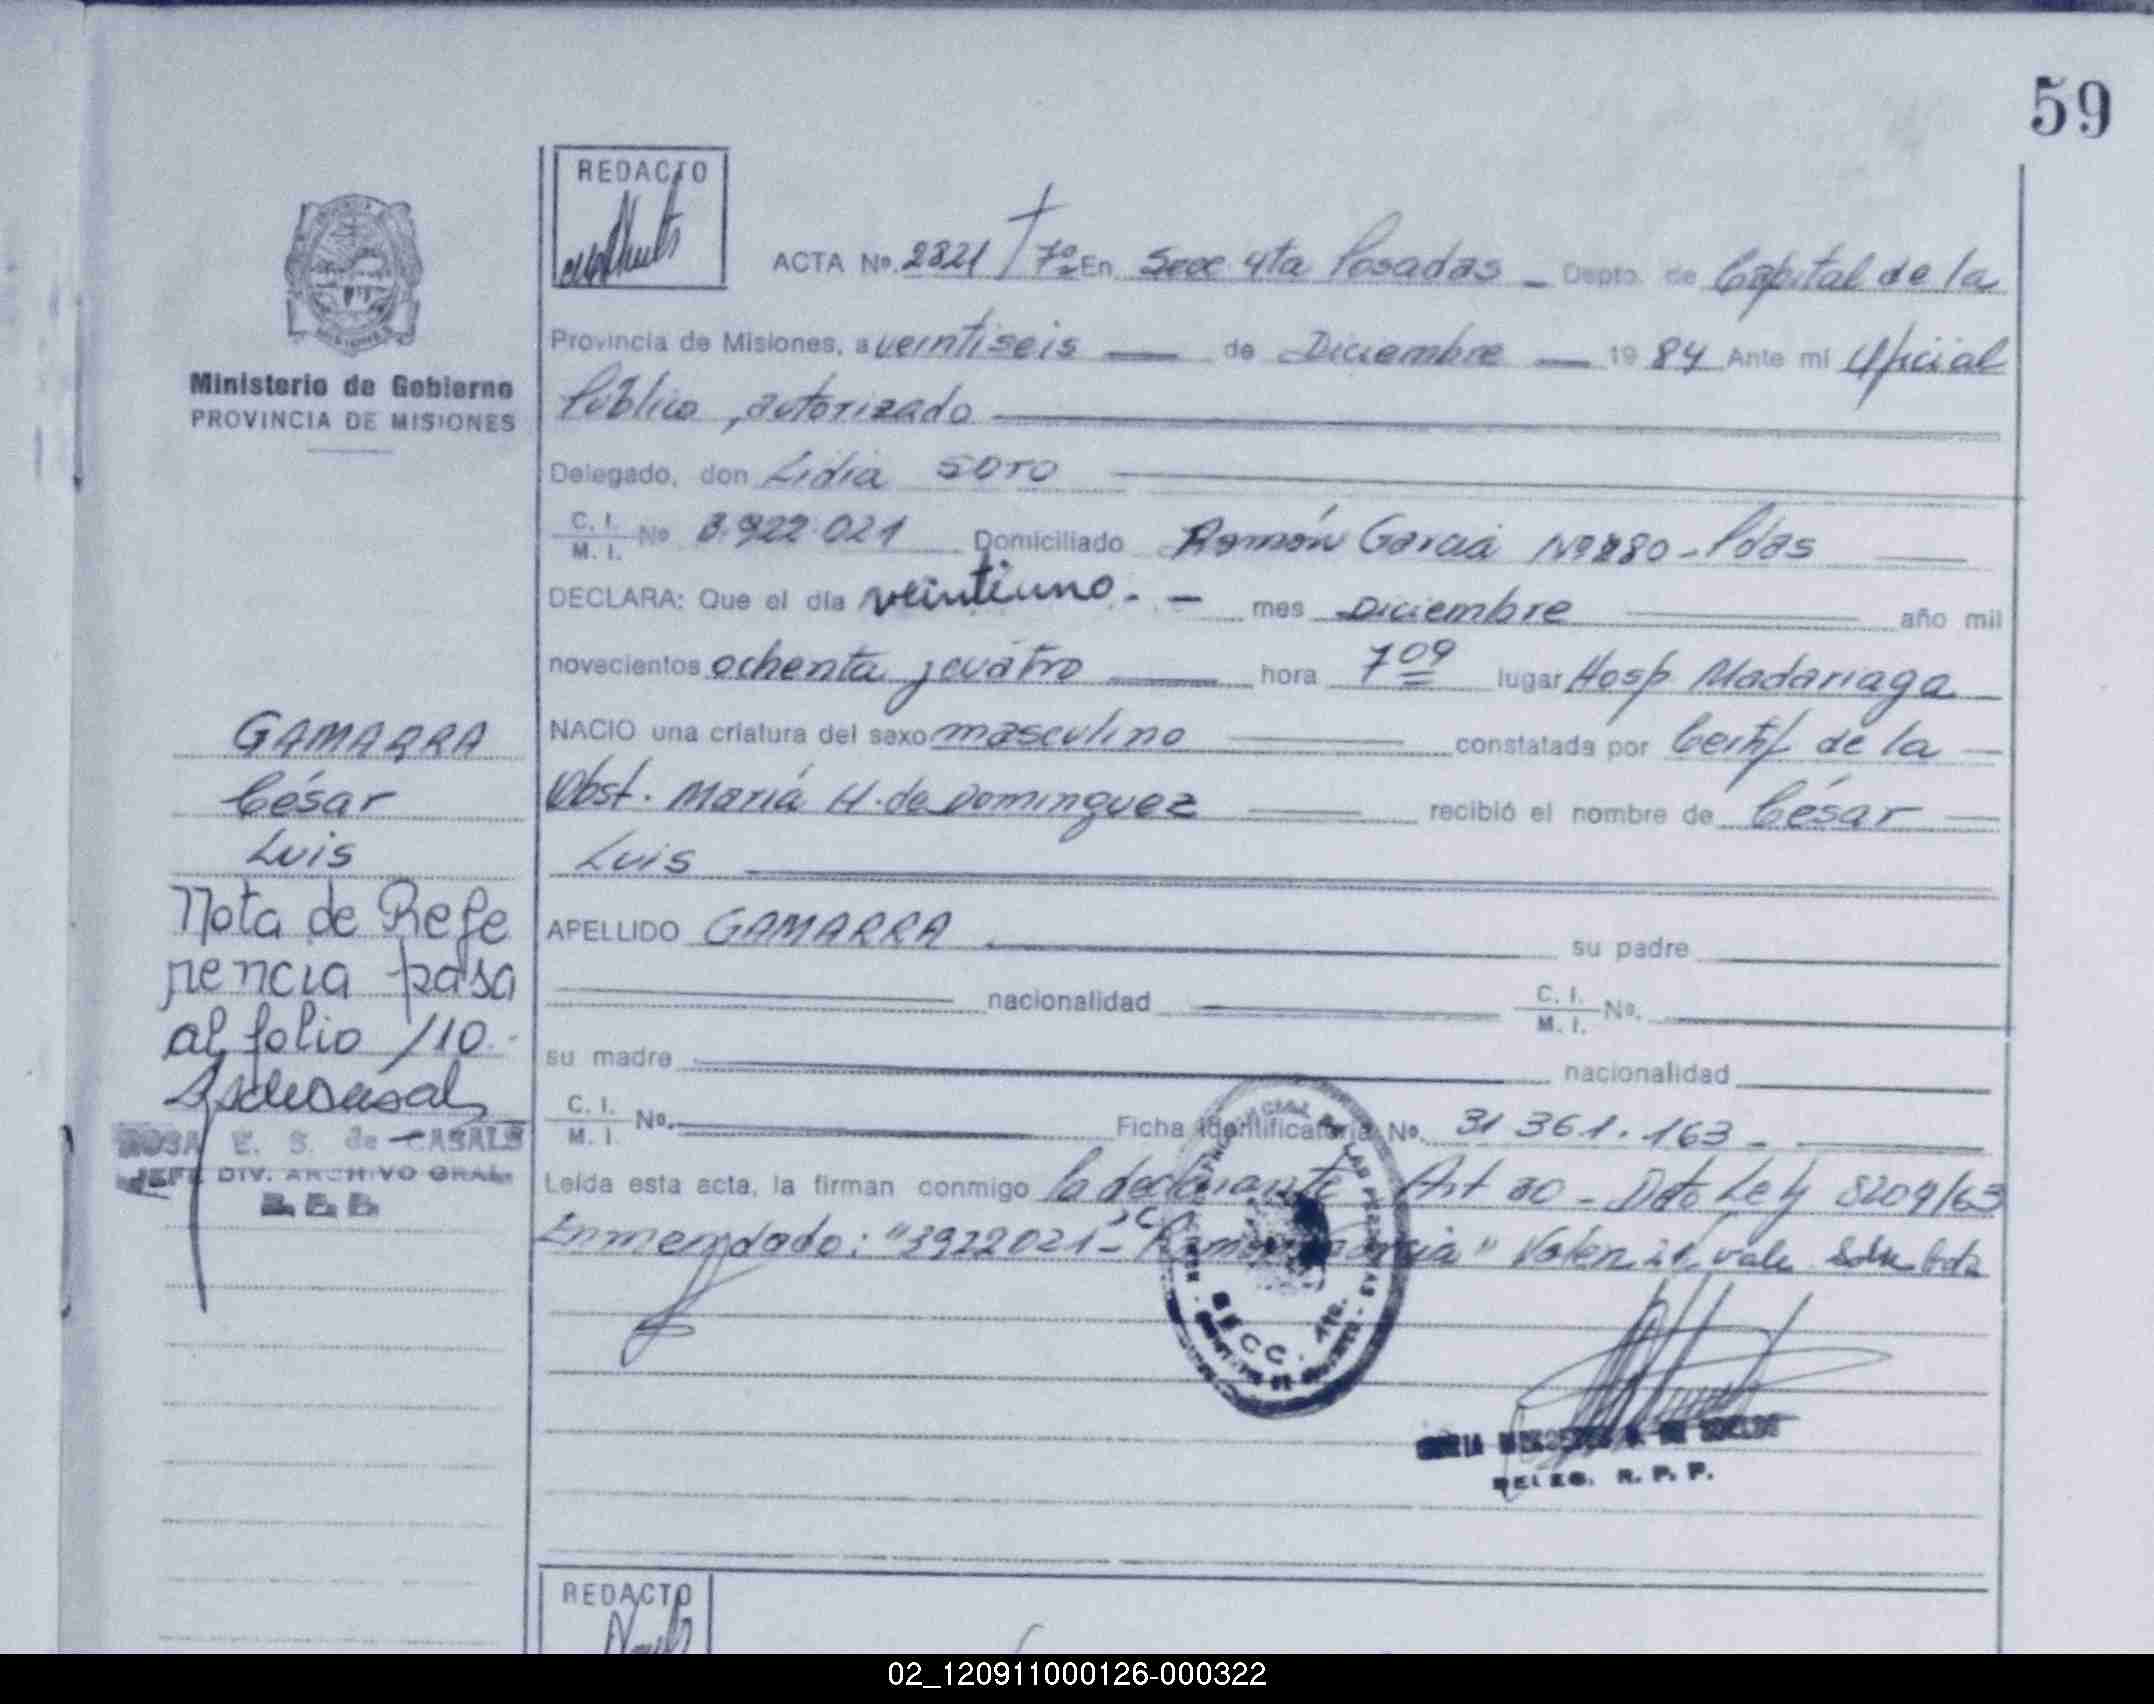 59
REDACTO
ACTA Nº 2821 / 7º En Secc 4ta Posadas - Depto. de Capital de la
Provincia de Misiones, a veintiseis — de Diciembre — 1984 Ante mi Oficial
Público, autorizado
Delegado, don Lidia SOTO
C. I.
M. I. Nº 3.922.021 Domiciliado Ramón Garcia Nº 280 - Pdas
DECLARA: Que el día veintiuno. - mes Diciembre año mil
novecientos ochenta y cuatro hora 7 09 lugar Hosp Madariaga
NACIO una criatura del sexo masculino constatada por Certif de la
Obst. Maria H. de Dominguez recibió el nombre de César
Luis
APELLIDO GAMARRA su padre
nacionalidad C. I.
M. I. Nº.
su madre nacionalidad
C. I.
M. I. Nº. Ficha identificatoria Nº. 31 361.163 -
Leída esta acta, la firman conmigo la declarante Art 20 - Dto Ley 8204/63
Enmendado: "3922021 - "Ramón Garcia" Valen
SECC. 4ta.
DELEG. R. P. P.
Ministerio de Gobierno
PROVINCIA DE MISIONES
GAMARRA
César
Luis
Nota de Refe
rencia pasa
al folio 110.-
ROSA E. S. de CASALS
JEFE DIV. ARCHIVO GRAL.
REDACTO
02_120911000126-000322